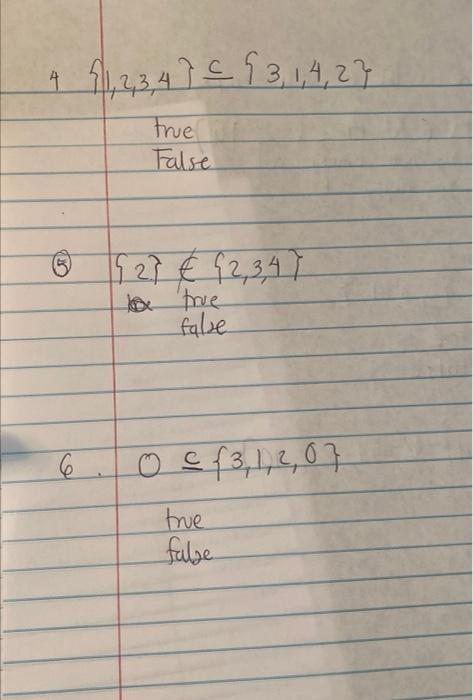 4 {1,2,3,4} ⊆ {3,1,4,2}
true
False
⑤ {2} ∉ {2,3,4}
true
false
6. 0 ⊆ {3,1,2,0}
true
false